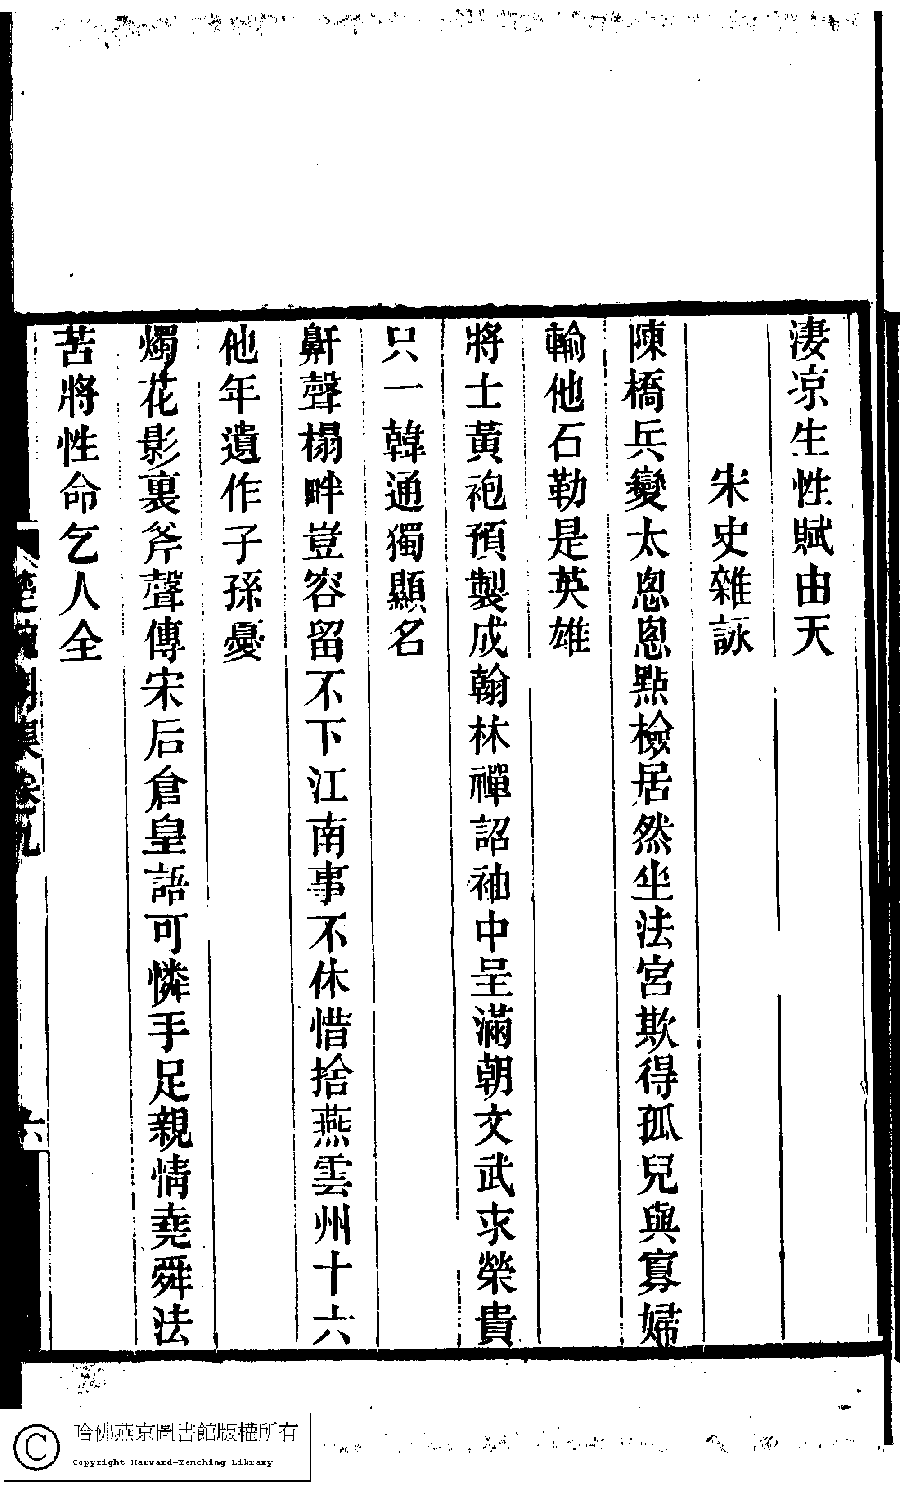 淒凉生性賦由天
宋史雜詠
陳橋兵變太悤悤點檢居然坐法宮欺得孤兒與寡婦
輸他石勒是英雄
將士黃袍預製成翰林禪詔袖中呈滿朝文武求榮貴
只一韓通獨顯名
鼾聲榻畔豈容留不下江南事不休惜捨燕雲州十六
他年遺作子孫憂
燭花影裏斧聲傳宋后倉皇語可憐手足親情堯舜法
苦將性命乞人全
集卷九
六
哈佛燕京圖書館版權所有
Copyright Harvard-Yenching Library